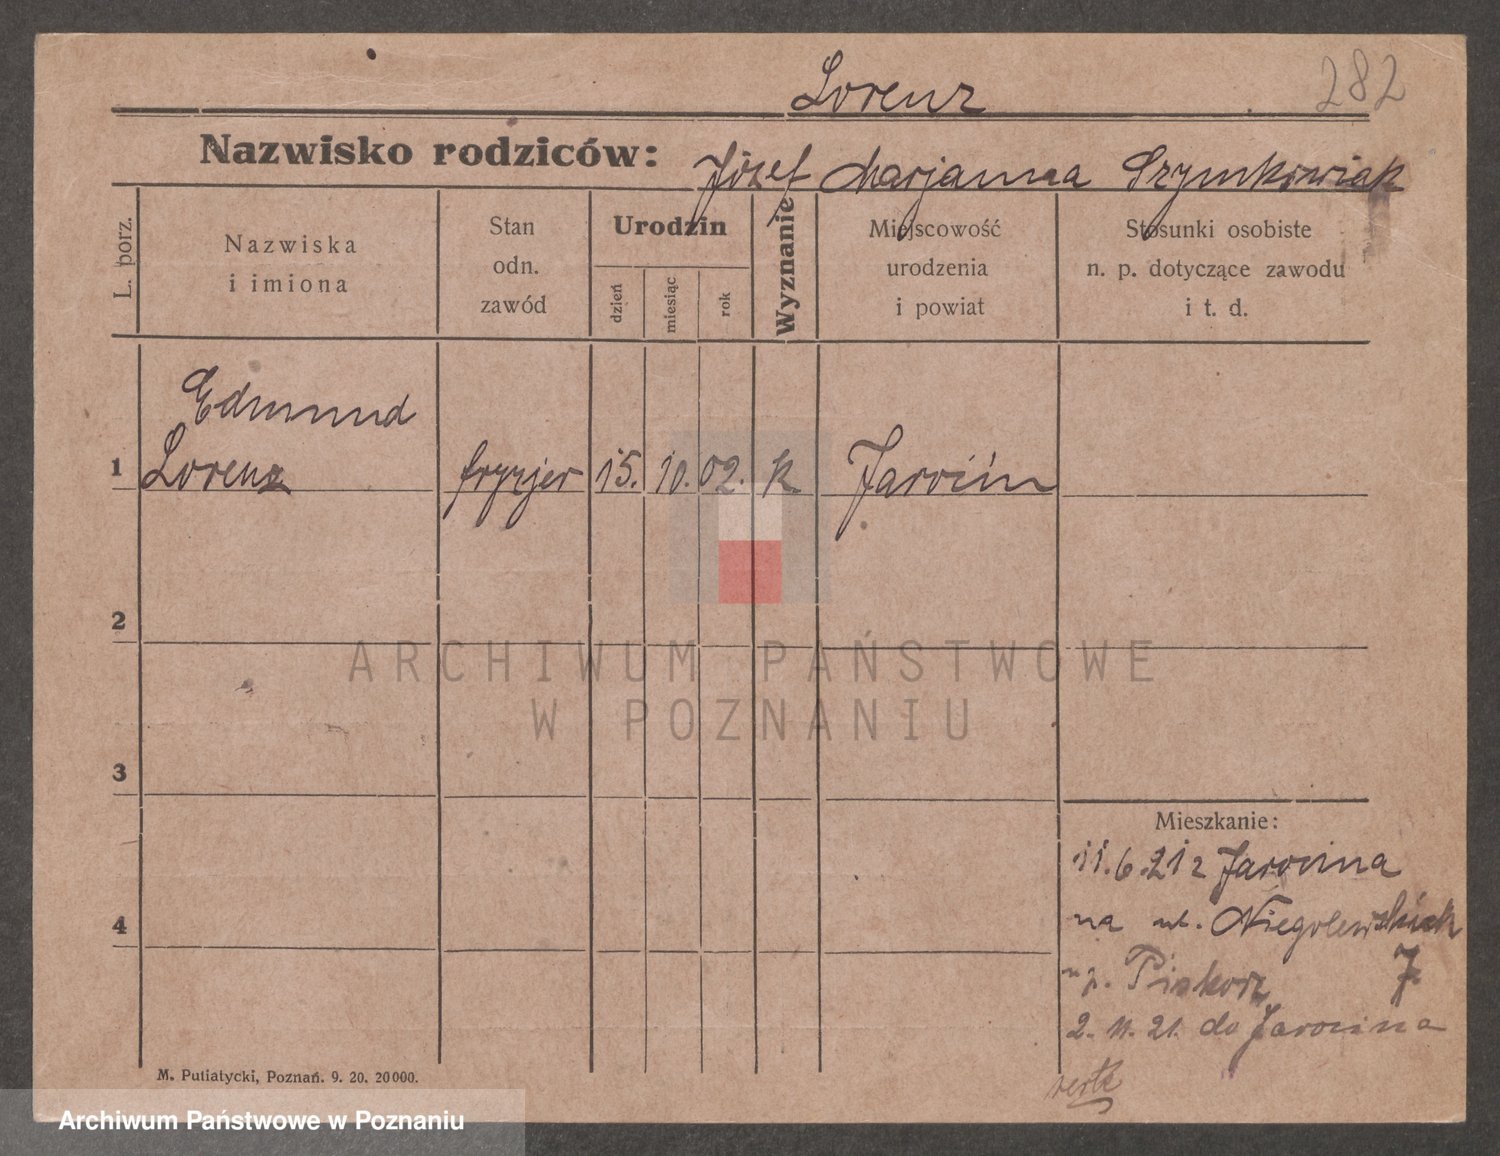 Lorenz 282
Nazwisko rodziców: Józef Marjanna Szymkowiak
L. porz.
Nazwiska
i imiona
Stan
odn.
zawód
Urodzin
dzień
miesiąc
rok
Wyznanie
Miejscowość
urodzenia
i powiat
Stosunki osobiste
n. p. dotyczące zawodu
i t. d.
Edmund
1 Lorenz fryzjer 15. 10. 02. k. Jarocin
2
3
4
Mieszkanie:
11.6.21 z Jarocina
na ul. Niegolewskich
7.
u p. Piskorz
2. 11. 21. do Jarocina
M. Putiatycki, Poznań. 9. 20. 20000.
ARCHIWUM PAŃSTWOWE
W POZNANIU
Archiwum Państwowe w Poznaniu